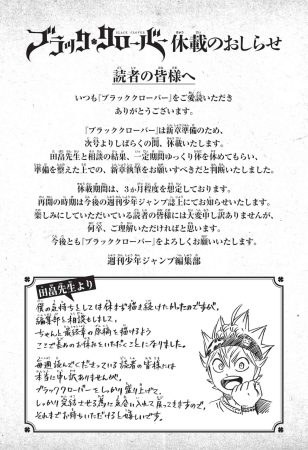 ブラック・クローバー 休載のおしらせ
読者の皆様へ
いつも『ブラッククローバー』をご愛読いただき
ありがとうございます。
『ブラッククローバー』は新章準備のため、
次号よりしばらくの間、休載いたします。
田畠先生と相談の結果、一定期間ゆっくり体を休めてもらい、
準備を整えた上での、新章執筆をお願いすべきだと判断いたしました。
休載期間は、3か月程度を想定しております。
再開の時期は今後の週刊少年ジャンプ誌上にてお知らせいたします。
楽しみにしていただいている読者の皆様には大変申し訳ありませんが、
何卒、ご理解いただければと思います。
今後とも『ブラッククローバー』をよろしくお願いいたします。
週刊少年ジャンプ編集部
田畠先生より
僕の気持ちとしては休まず描き続けたかったのですが、
編集部とも相談しまして、
ちゃんと最終章の原稿を描けるよう
ここで長めのお休みをいただくことになりました。
毎週読んでくださっている読者の皆様には
本当に申し訳ありませんが、
ブラッククローバーをしっかり盛り上げて
しっかり完結させる為に気合い入れて戻ってきますので、
それまでお待ちいただけると嬉しいです。